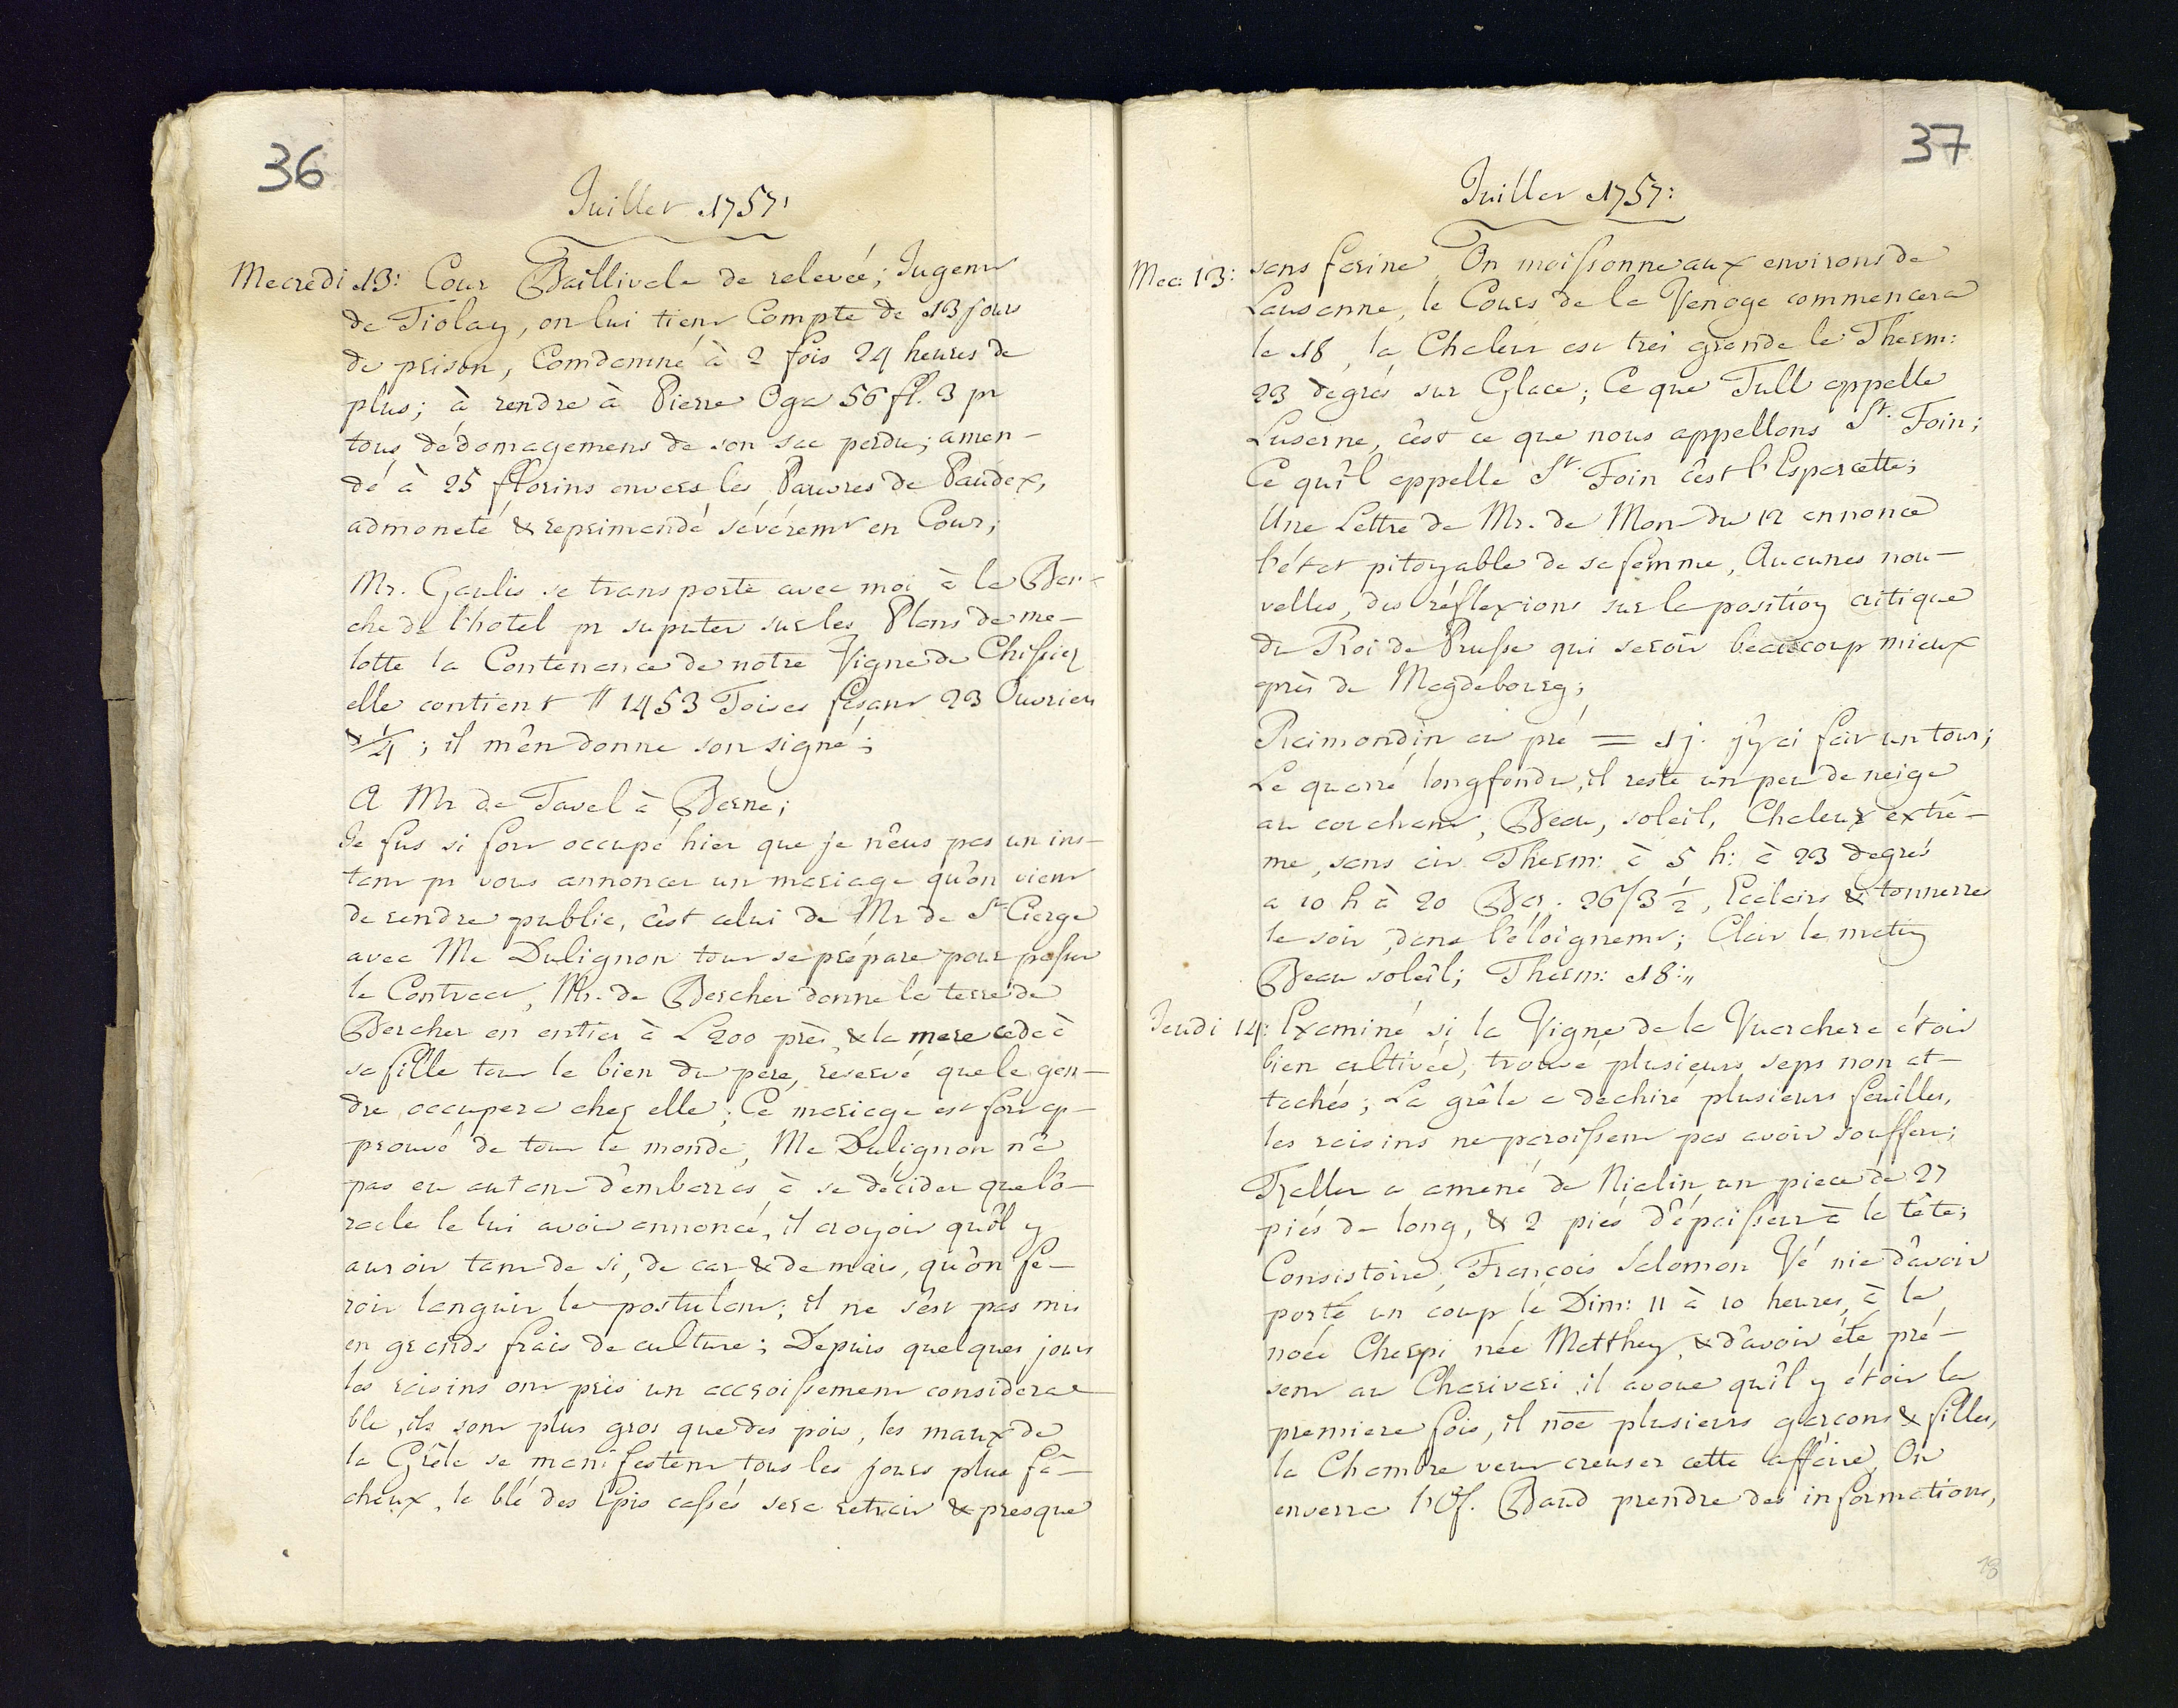 36
Juillet 1757:
Mecredi 13: Cour Baillivale de relevée; Jugemt
de Tiolay, on lui tient Compte de 13 jours
de prison, Comdamné à 2 fois 24 heures de
plus; à rendre à Pierre Oga 56 fl. 3 pr
tous dédomagemens de son sac perdu; amen-
dé à 25 fflorins envers les Pauvres de Paudex,
admoneté & reprimandé sévéremt en Cour;
Mr. Gaulis se transporte avec moi à la Bar-
che de l'hotel pr suputer sur les Plans de me-
lotte la Contenance de notre Vigne de Chissiez
elle contient 1453 Toises fesant 23 Ouvriers
& 1/4; il m'en donne son signé;
A Mr de Tavel à Berne;
Je fus si fort occupé hier que je n'eus pas un ins-
tant pr vous annoncer un mariage qu'on vient
de rendre public, c'est celui de Mr de St Cierge
avec Me Dulignon tout se prépare pour passer
le Contract, Mr. de Bercher donne la terre de
Bercher en entier à L 200 près, & la mere cede à
sa fille tout le bien du pere, reservé que le gen-
dre occupera chez elle; Ce mariage est fort ap-
prouvé de tout le monde, Me Dulignon n'a
pas eu autant d'embarras à se décider que l'o-
racle le lui avoit annoncé, il croyoit qu'il y
auroit tant de si, de car & de mais, qu'on fe-
roit languir le postulant; il ne s'est pas mis
en grands frais de culture; Depuis quelques jours
les raisins ont pris un accroissement considera-
ble, ils sont plus gros que des pois, les maux de
la Grêle se manifestent tous les jours plus fâ-
cheux, le blé des Epis cassés sera retrait & presque
37
Juillet 1757:
Mec: 13: sans farine, On moissonne aux environs de
Lausanne, le Cours de la Venoge commencera
le 18, la Chaleur est trei grande le Therm:
23 degrés sur Glace; Ce que Tull appelle
Luserne, c'est ce que nous appellons St. Foin;
Ce qu'il appelle St. Foin c'est l'Esparcette;
Une Lettre de Mr. de Mon du 12 annonce
l'état pitoyable de sa femme, Aucunes nou-
velles, des réflexions sur la position critique
du Roi de Prusse qui seroit beaucoup mieux
près de Magdebourg;
Raimondin au pré = 1 j. j'y ai fait un tour;
Le quarré long fondu, il reste un peu de neige
au couchant, Beau, soleil, Chaleur extrê-
me, sans air Therm: à 5 h: à 23 degrés
a 10 h à 20 Bar. 26/3 1/2, Eclairs & tonnerre
le soir, dans l'éloignemt; Clair le matin
Beau soleil; Therm: 18:,,
Jeudi 14: Examiné si la Vigne de la Vuachere étoit
bien cultivée, trouvé plusieurs seps non at-
tachés; La grêle a dechiré plusieurs feuilles,
les raisins ne paroissent pas avoir souffert;
Traller a amené de Nialin un piece de 27
piés de long, & 2 piés d'épaisseur à la tête;
Consistoire, François Salomon Vé nie d'avoir
porté un coup le Dim: 11 à 10 heures, à la
noée Cherpi née Matthey, & d'avoir été pré-
sent au Charivari il avoue qu'il y étoit la
premiere fois, il noe plusieurs garcons & filles,
la Chambre veut creuser cette affaire, On
enverra l'Of. Baud prendre des informations,
18